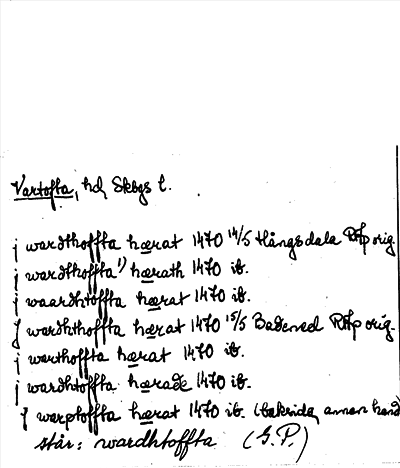 Vartofta, hd, Skbgs l.
j wardthoffta hærat 1470 14/5 Hångsdala RAp orig.
j wardthoffta 1) hærath 1470 ib.
j waardhtoffta hærat 1470 ib.
J wardhthoffta hærat 1470 15/5 Bakered RAp orig.
j warthoffta hærat 1470 ib.
j wardhtoffta hærade 1470 ib.
J warptoffta hærat 1470 ib. (baksida, annan hand)
står: wardhtoffta (G.P.)